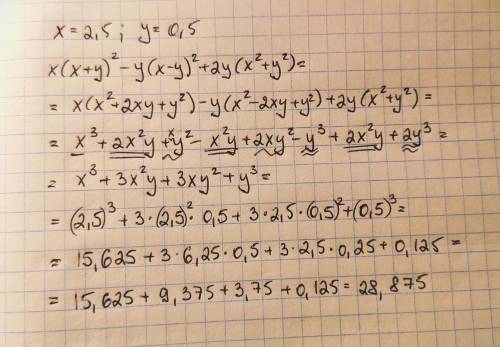 x = 2,5 ; y = 0,5
x(x+y)² - y(x-y)² + 2y(x²+y²) =
= x(x²+2xy+y²) - y(x²-2xy+y²) + 2y(x²+y²) =
= x³ + 2x²y + xy² - x²y + 2xy² - y³ + 2x²y + 2y³ =
= x³ + 3x²y + 3xy² + y³ =
= (2,5)³ + 3·(2,5)²·0,5 + 3·2,5·(0,5)² + (0,5)³ =
= 15,625 + 3·6,25·0,5 + 3·2,5·0,25 + 0,125 =
= 15,625 + 9,375 + 3,75 + 0,125 = 28,875